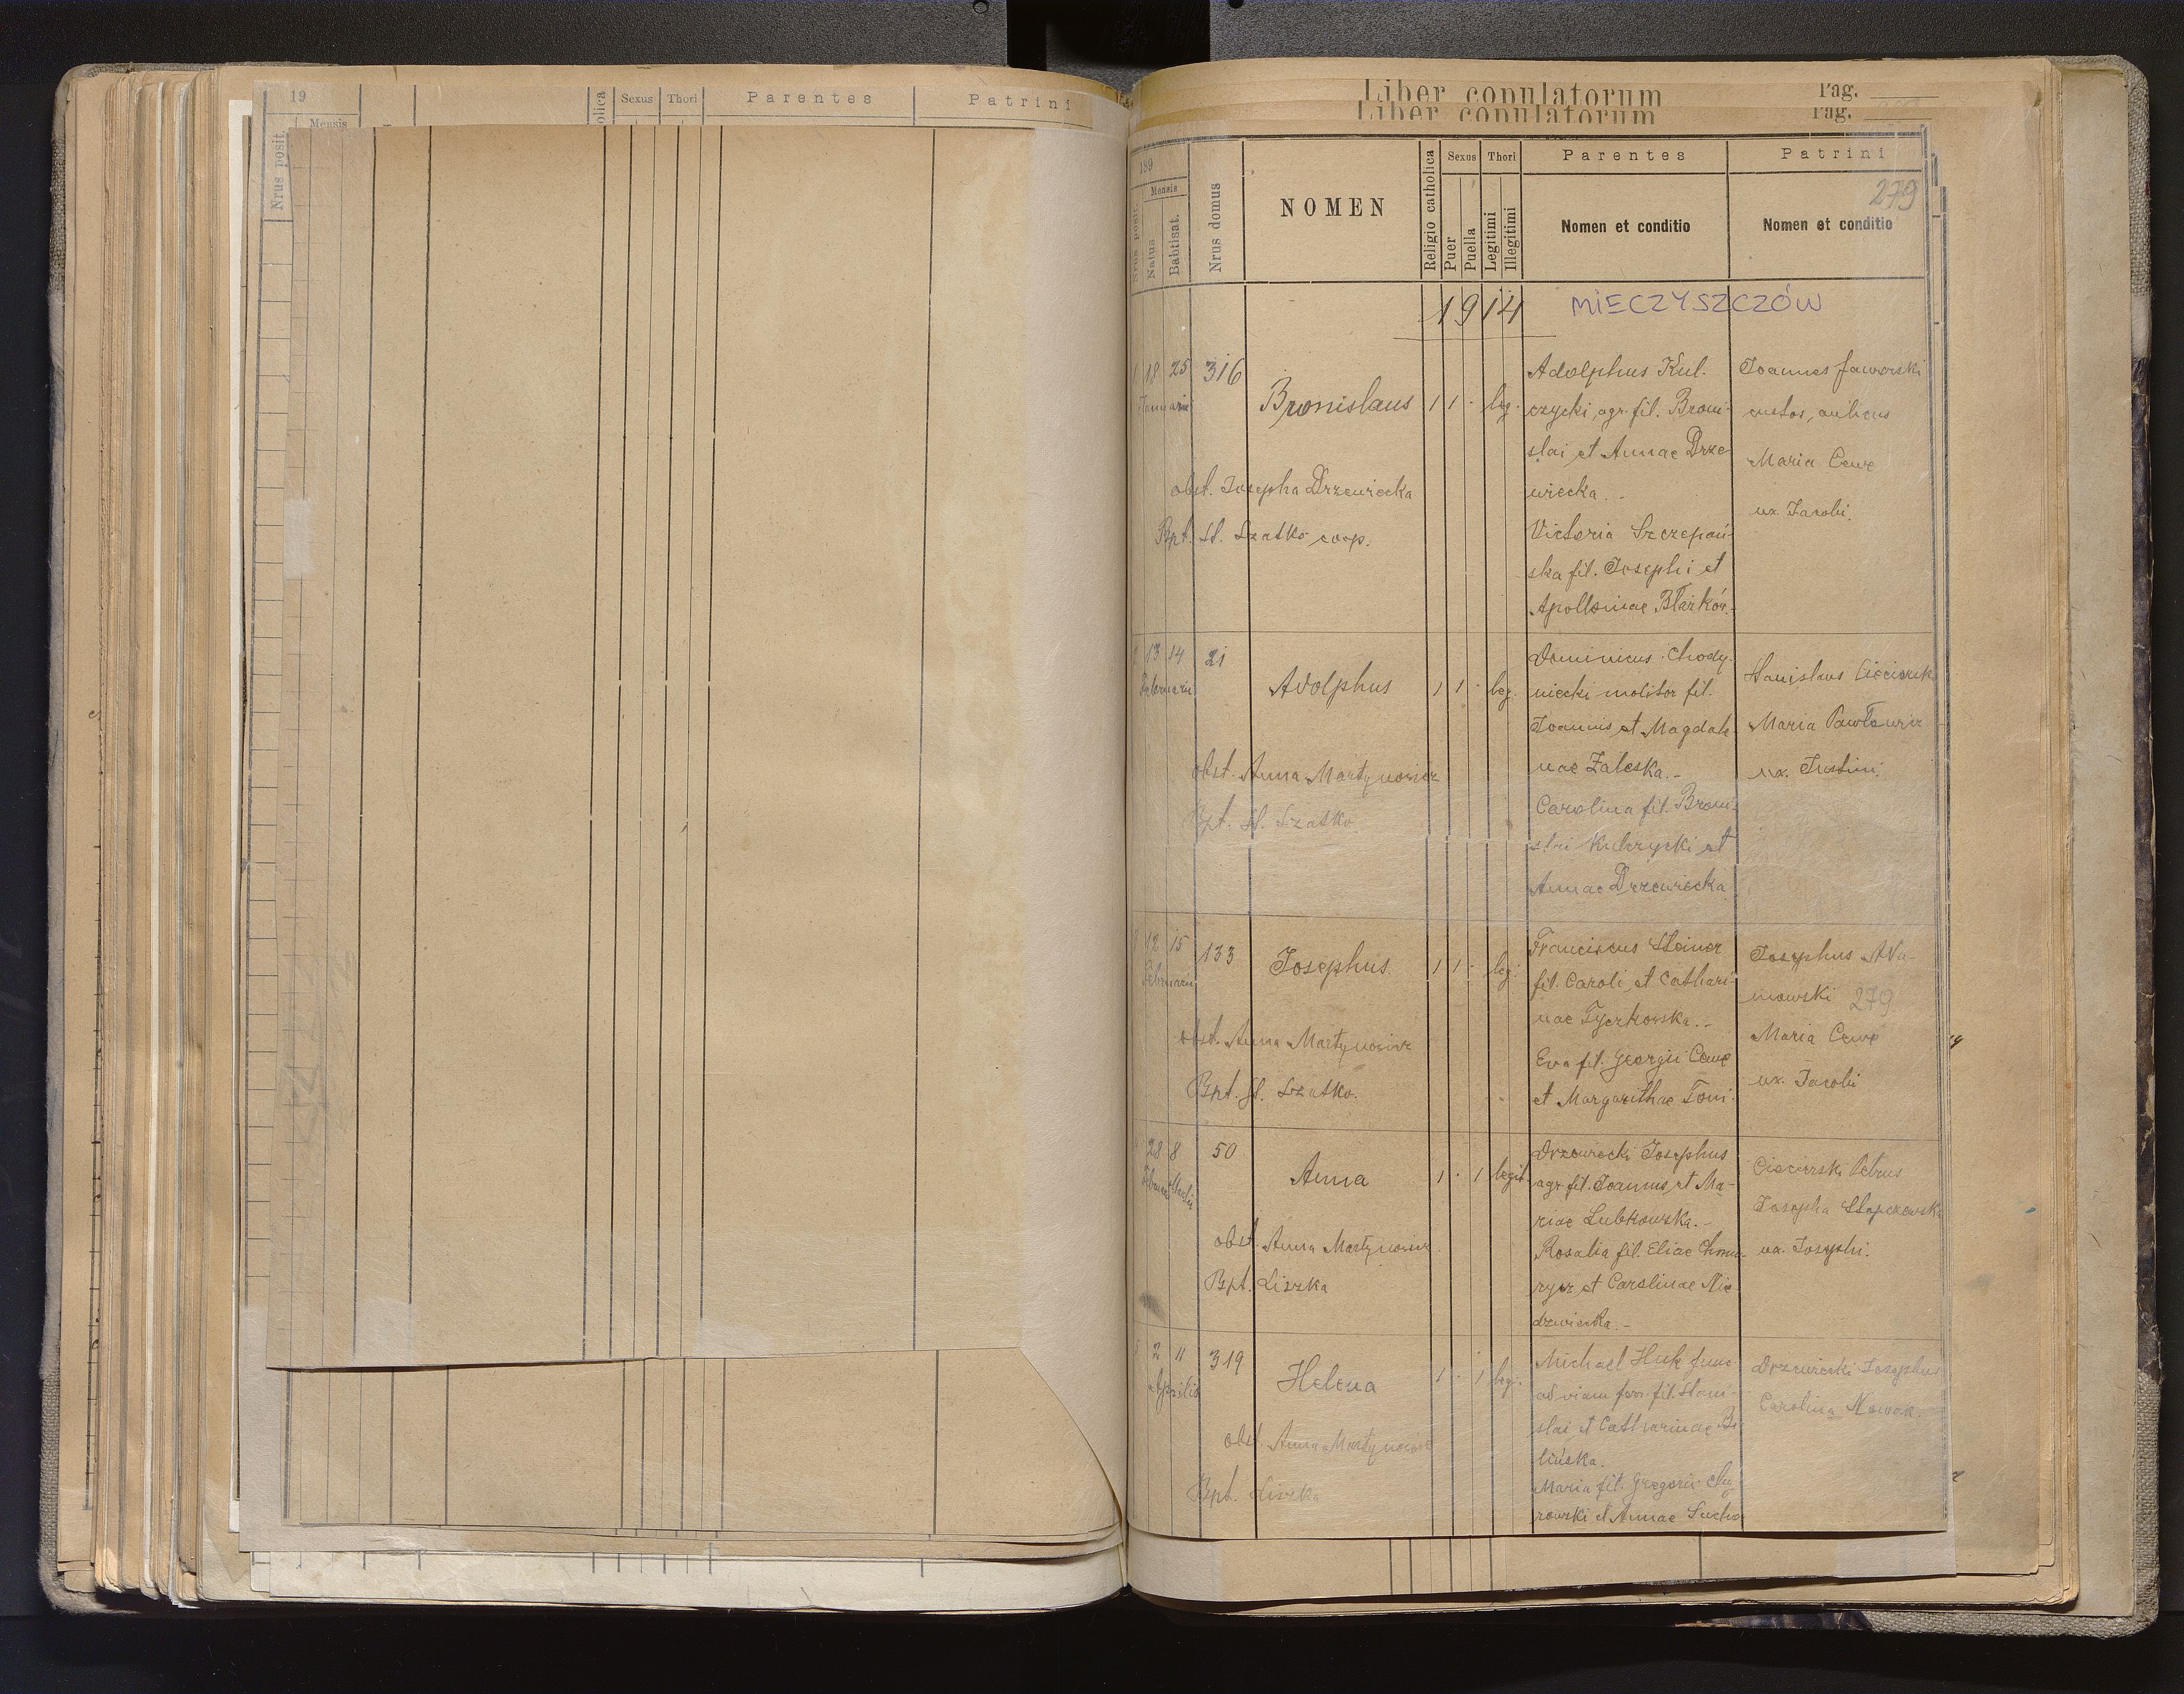 19
Mensis
Nrus posit.
olica
Sexus Thori Parentes Patrini
Liber copulatorum Pag.
Liber copulatorum Pag.
189
Mensis
Nrus posit.
Natus
Babtisat.
Nrus domus
NOMEN
Religio catholica
Sexus
Puer
Puella
Thori
Legitimi
Illegitimi
Parentes
Nomen et conditio
Patrini
279
Nomen et conditio
1914 MIECZYSZCZÓW
1 18 25 316
Januarii
Bronislaus 1 1 · leg.
obst. Josepha Drzewiecka
Bpt. St. Szatko coop.
Adolphus Kul-
czycki, agr. fil. Broni-
slai et Annae Drze-
wiecka. -
Victoria Szczepań-
ska fil. Josephi et
Apolloniae Błażków.
Joannes Jaworski
custos, aulicus
Maria Cewe
ux. Jacobi.
13 14 21
Februarii
Adolphus 1 1 · leg.
obst. Anna Martynowicz
Bpt. St. Szatko
Dominicus Chody-
niecki molitor fil.
Joannis et Magdale-
nae Zaleska. -
Carolina fil. Broni-
slai Kulczycki et
Annae Drzewiecka
Stanislaus
Maria
ux. Justini.
12 15 133
Februarii
Josephus 1 1 · leg.
obst. Anna Martynowicz
Bpt. St. Szatko.
Franciscus Steiner
fil. Caroli et Cathari-
nae Tyczkowska. -
Eva fil. Georgii Cewe
et Margarithae Toni.
Josephus
279
Maria Cewe
ux. Jacobi
28 8 50
Anna 1 · 1 legit.
obst. Anna Martynowicz
Bpt. Liszka
Drzewiecki Josephus
agr. fil. Joannis et Ma-
riae Lubkowska. -
Rosalia fil. Eliae
et Carolinae Nie-
dzwiecka. -
Ciecierski Petrus
Josepha
ux. Josephi.
5 2 11 319
Aprilis
Helena 1 · 1 leg.
obst. Anna Martynowicz
Bpt. Liszka
Michael Huk func.
ad viam ferr. fil. Stani-
slai et Catharinae Bi-
lińska.
Maria fil. Gregorii
et Annae Sucho
Drzewiecki Josephus
Carolina Nowak.